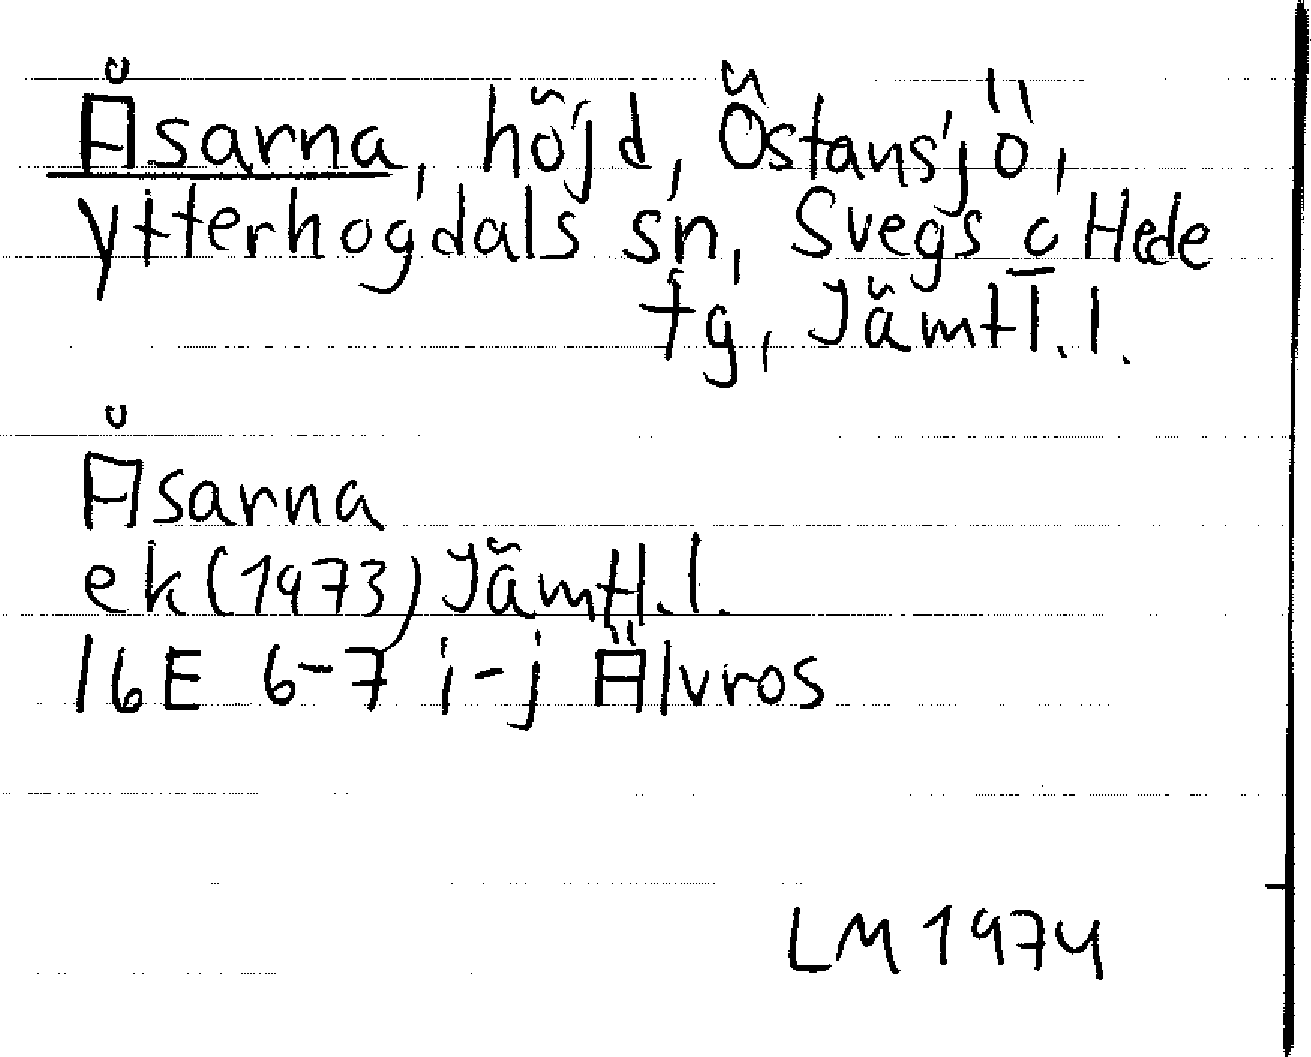 Åsarna, höjd, Östansjö,
Ytterhogdals sn, Svegs o Hede
tg, Jämtl. l.
Åsarna
ek (1973) Jämtl. l.
16E 6-7 i-j Älvros
LM 1974